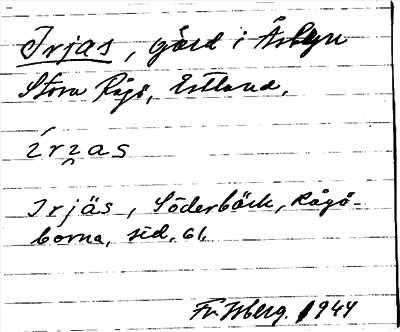 Irjas, gård i Österbyn
Stora Rågö, Estland.
írzas
Irjäs, Söderbäck, Rågö-
borna, sid. 61.
1944